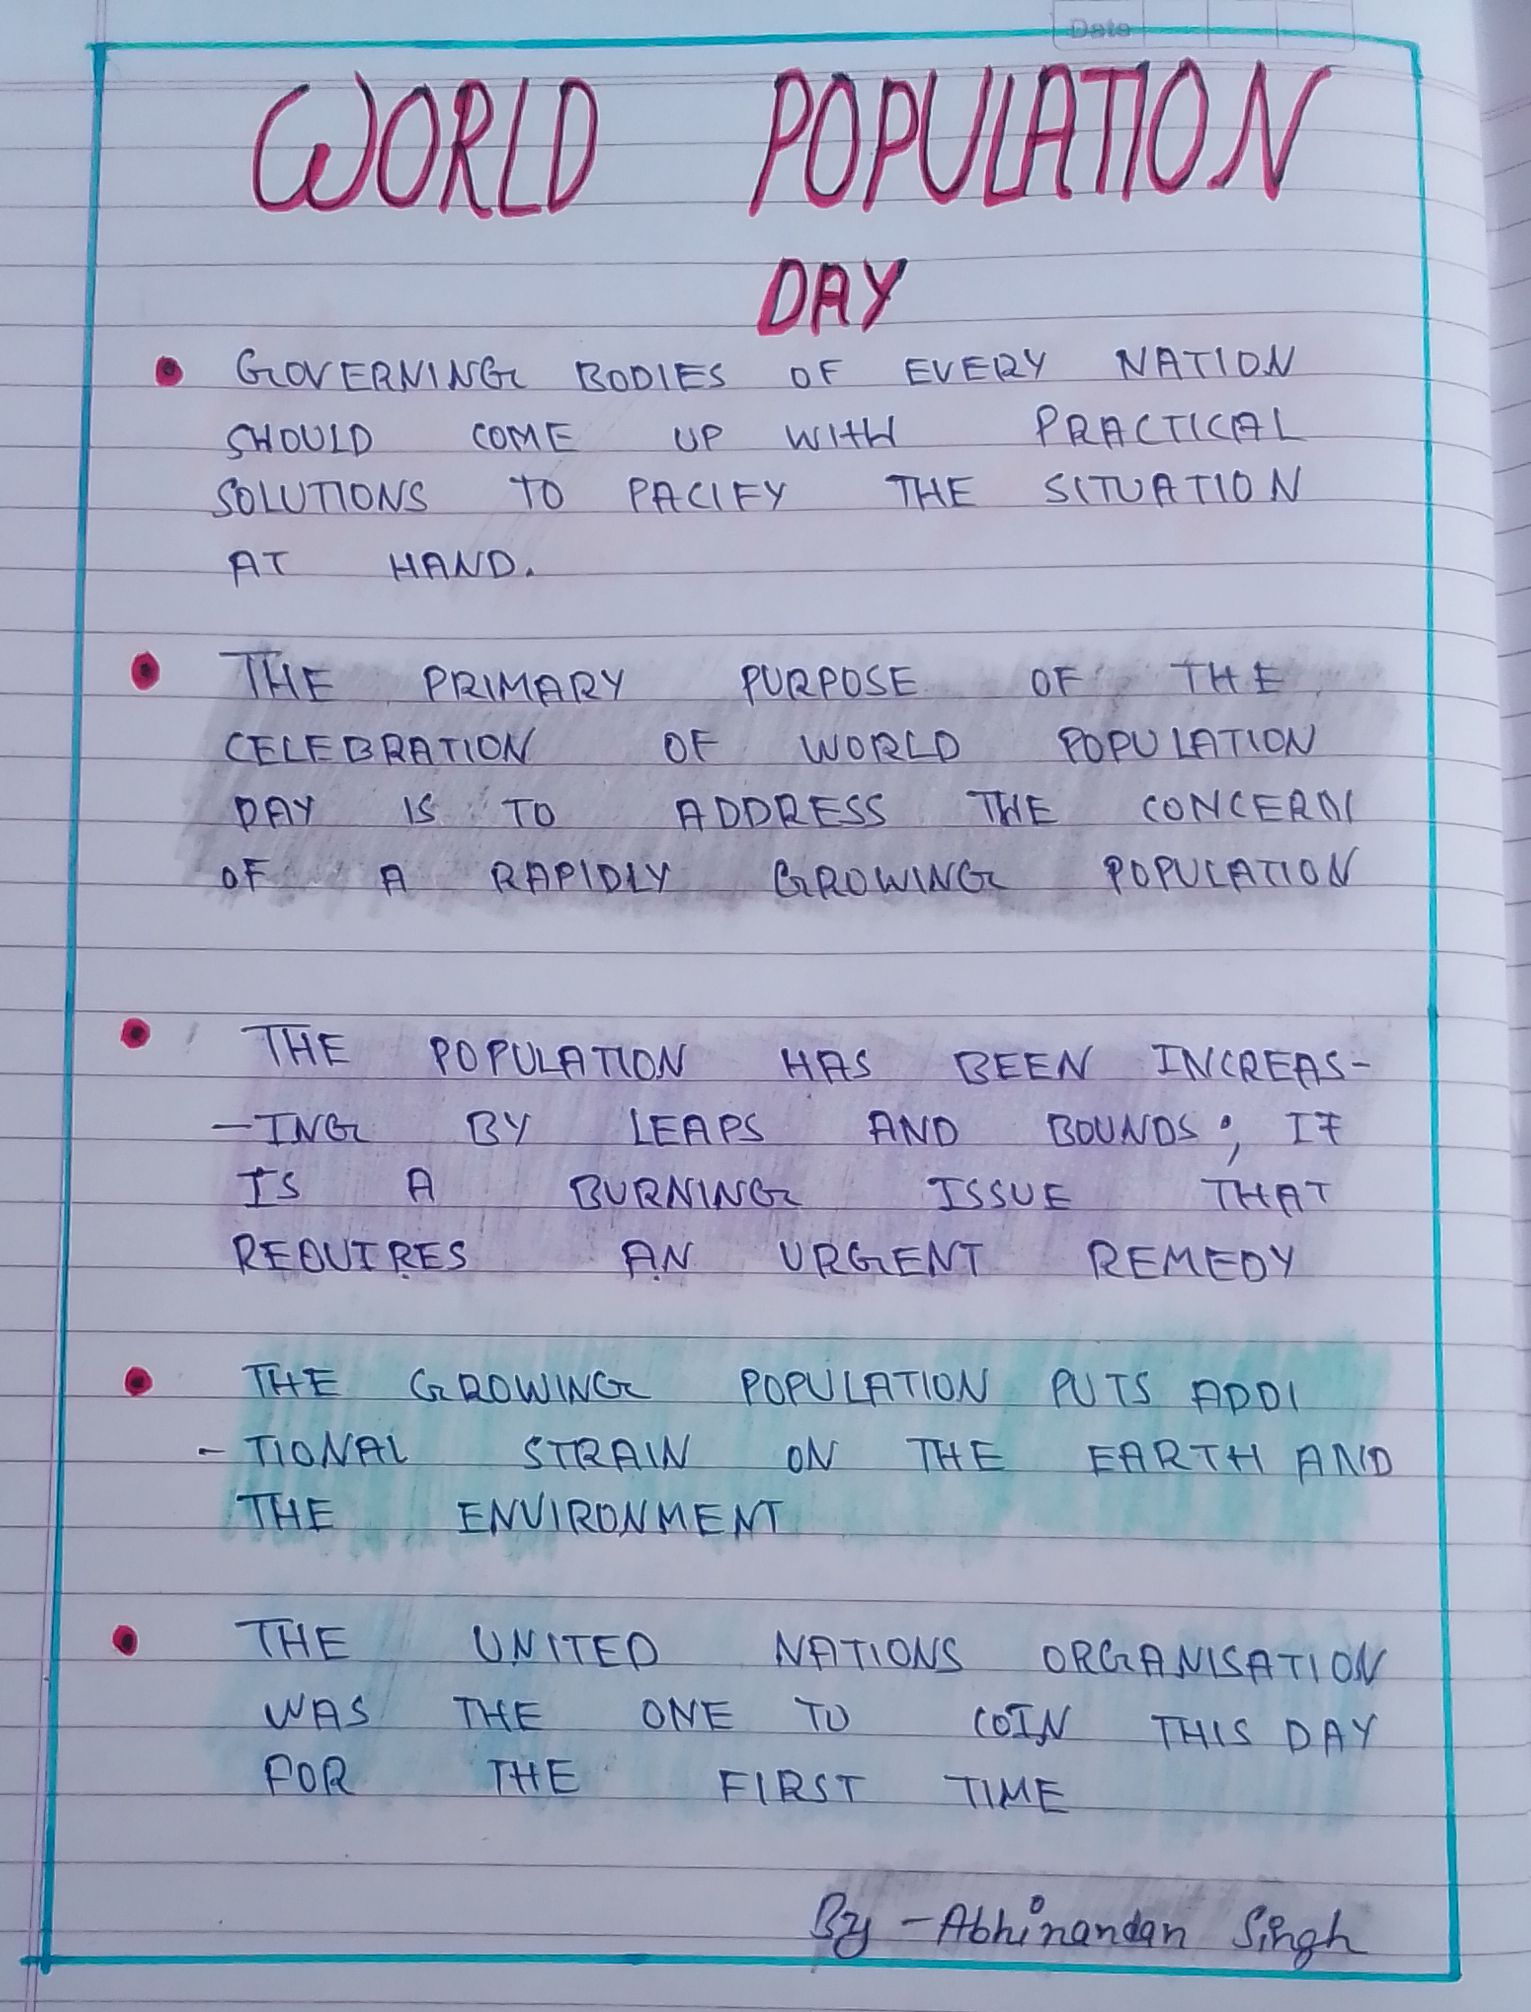 Date
WORLD POPULATION
DAY
GOVERNING BODIES OF EVERY NATION
SHOULD COME UP WITH PRACTICAL
SOLUTIONS TO PACIFY THE SITUATION
AT HAND.
THE PRIMARY PURPOSE OF THE
CELEBRATION OF WORLD POPULATION
DAY IS TO ADDRESS THE CONCERN
OF A RAPIDLY GROWING POPULATION
THE POPULATION HAS BEEN INCREAS-
-ING BY LEAPS AND BOUNDS; IT
IS A BURNING ISSUE THAT
REQUIRES AN URGENT REMEDY
THE GROWING POPULATION PUTS ADDI
-TIONAL STRAIN ON THE EARTH AND
THE ENVIRONMENT
THE UNITED NATIONS ORGANISATION
WAS THE ONE TO COIN THIS DAY
FOR THE FIRST TIME
By - Abhinandan Singh